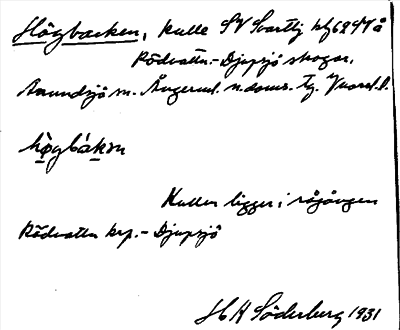 Högbacken, kulle SV Svarttj. kfl 62 SV å
Rödvattn.-Djupsjö skogar.
Anundsjö sn. Ångerml. n. doms. tg. Vnorrl. l.
högbákɐn
Kullen ligger i rågången
Rödvattn krp.-Djupsjö
H A Söderberg 1931